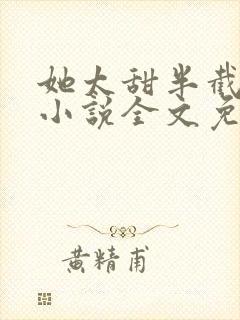 她太甜半截
小说全文免
黄精甫